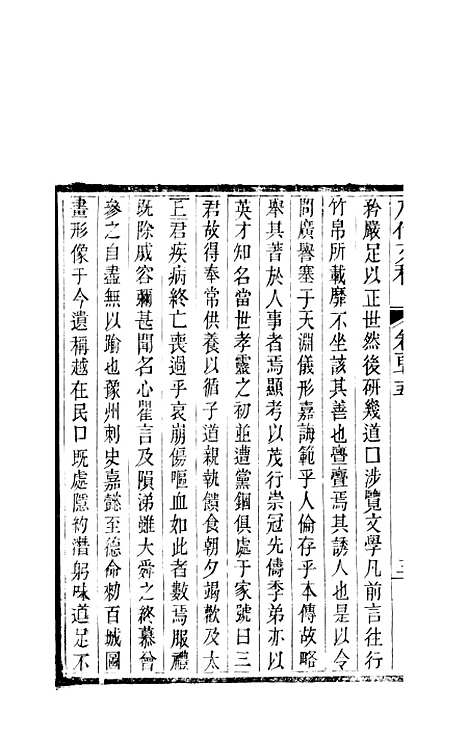 矜嚴足以正世然後研幾道口涉覽文學凡前言往行
竹帛所載靡不坐該其善也亹亹焉其誘人也是以令
問廣譽塞于天淵儀形嘉誨範乎人倫存乎本傳故略
舉其著於人事者焉顯考以茂行崇冠先儔季弟亦以
英才知名當世孝靈之初並遭黨錮俱處于家號曰三
君故得奉常供養以循子道親執饋食朝夕竭歡及太
丘君疾病終亡喪過乎哀崩傷嘔血如此者數焉服禮
既除戚容彌甚聞名心瞿言及隕涕雖大舜之終慕曾
參之自盡無以踰也豫州刺史嘉懿至德命勑百城圖
畫形像于今遺稱越在民口既處隱約潛躬味道足不